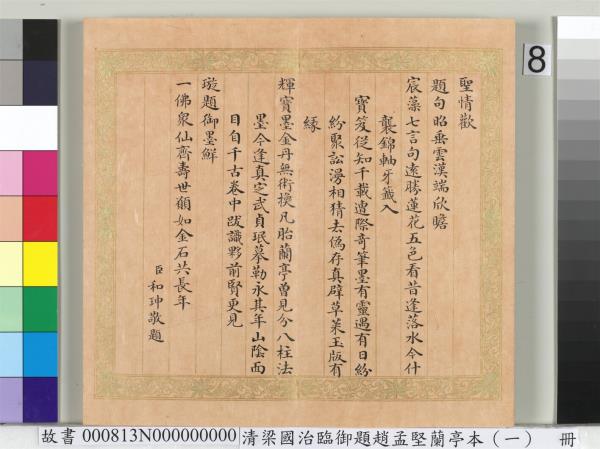 聖情歡
題句昭垂雲漢端欣瞻
宸藻七言句遠勝蓮花五色看昔逢落水今什
襲錦軸牙籤入
寶笈從知千載遭際奇筆墨有靈遇有日紛
紛聚訟漫相猜去偽存真辟草萊玉版有
緣
輝寶墨金丹無術換凡胎蘭亭曾見分八柱法
墨今逢真定武貞珉摹勒永其年山陰面
目自千古卷中跋識夥前賢更見
璇題御墨鮮
一佛眾仙齊壽世願如金石共長年
臣和珅敬題
8
故書 000813N000000000 清梁國治臨御題趙孟堅蘭亭本（一） 冊